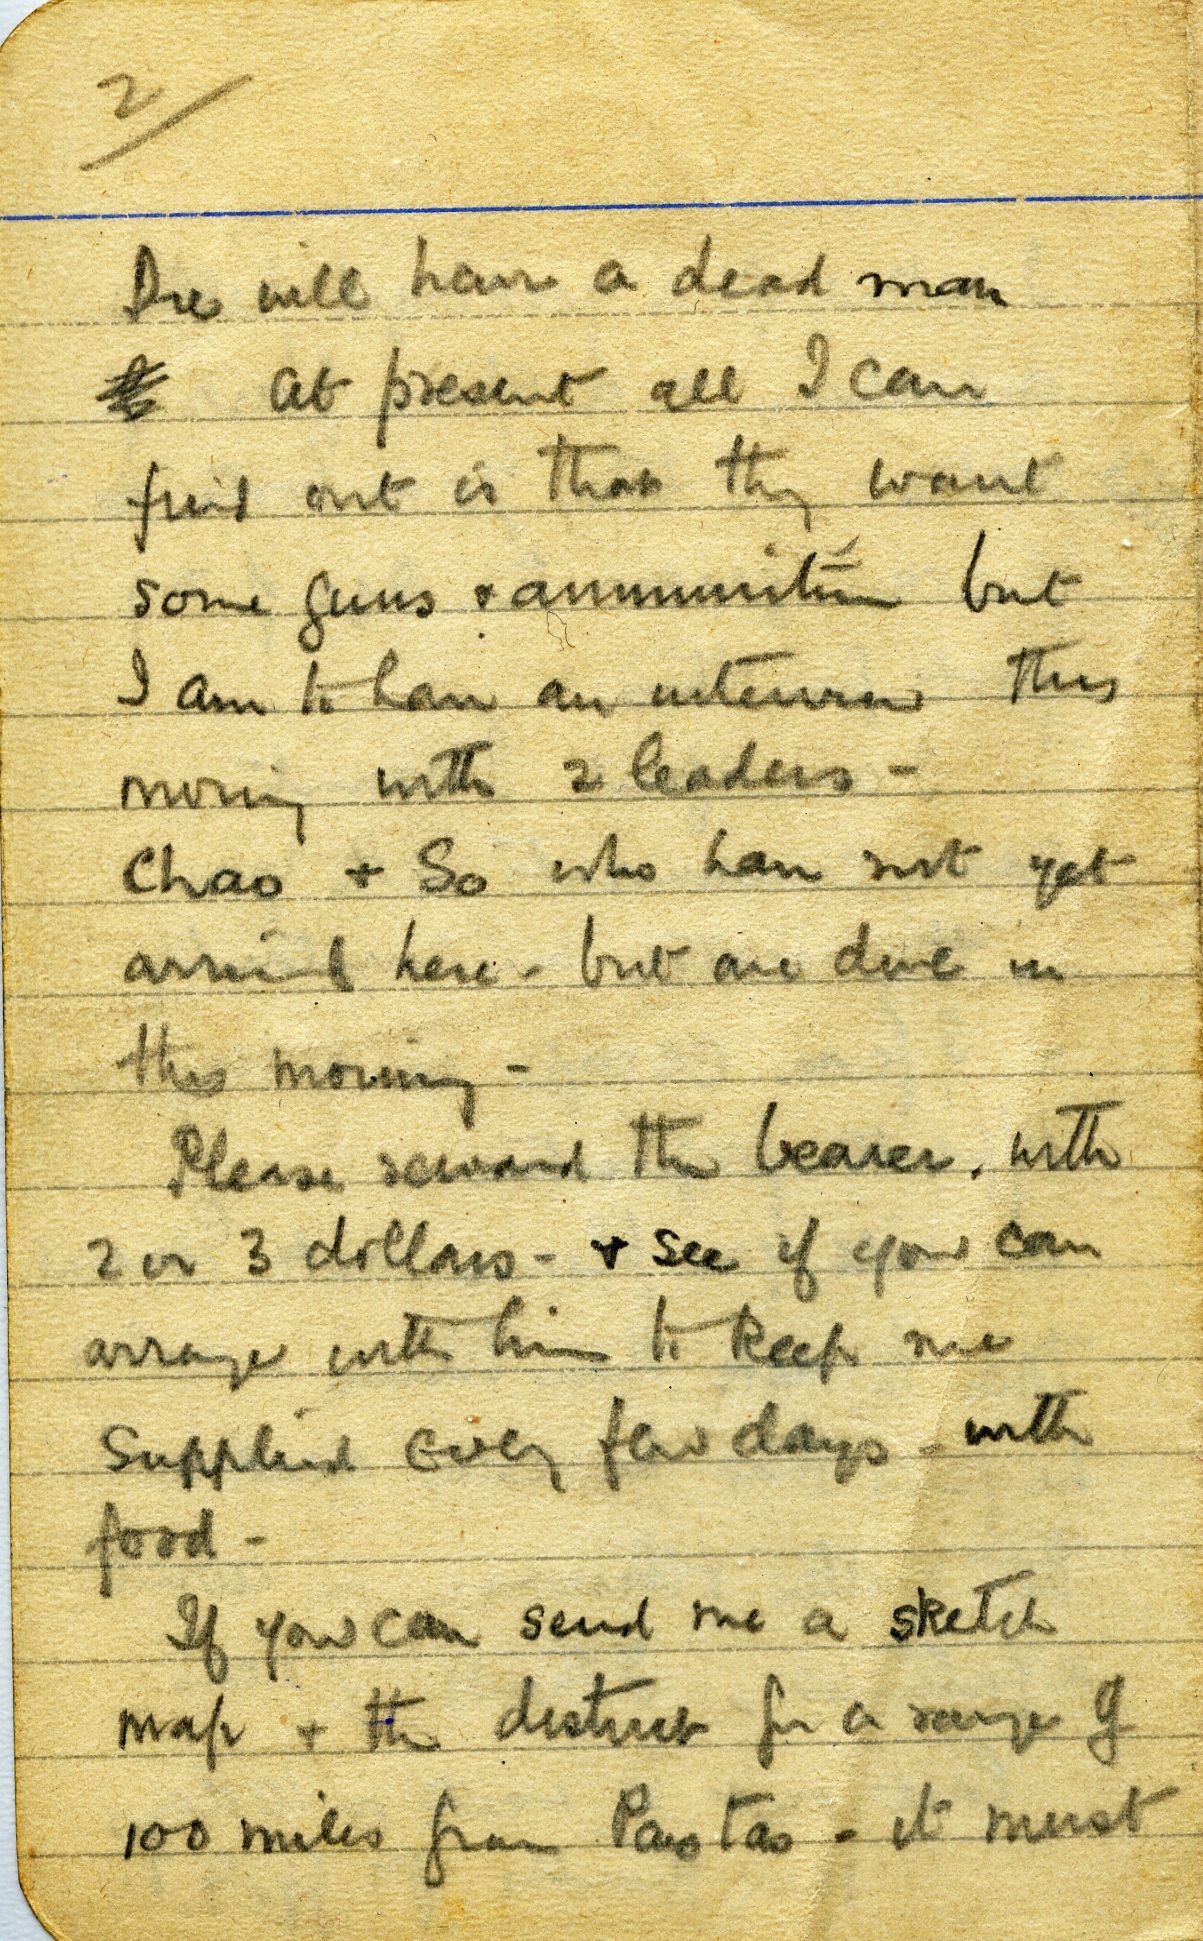 2/
We will have a dead man
At present all I can
find out is that they want
some guns + ammunition but
I am to have an interview this
moring with 2 leaders -
Chao + So who have not yet
arrived here - but are due in
this morning -
Please reward the bearer. with
2 or 3 dollars - + see if you can
arrange with him to keep me
Supplied every few days - with
food -
If you can send me a sketch
map + the district for a range of
100 miles from - it must